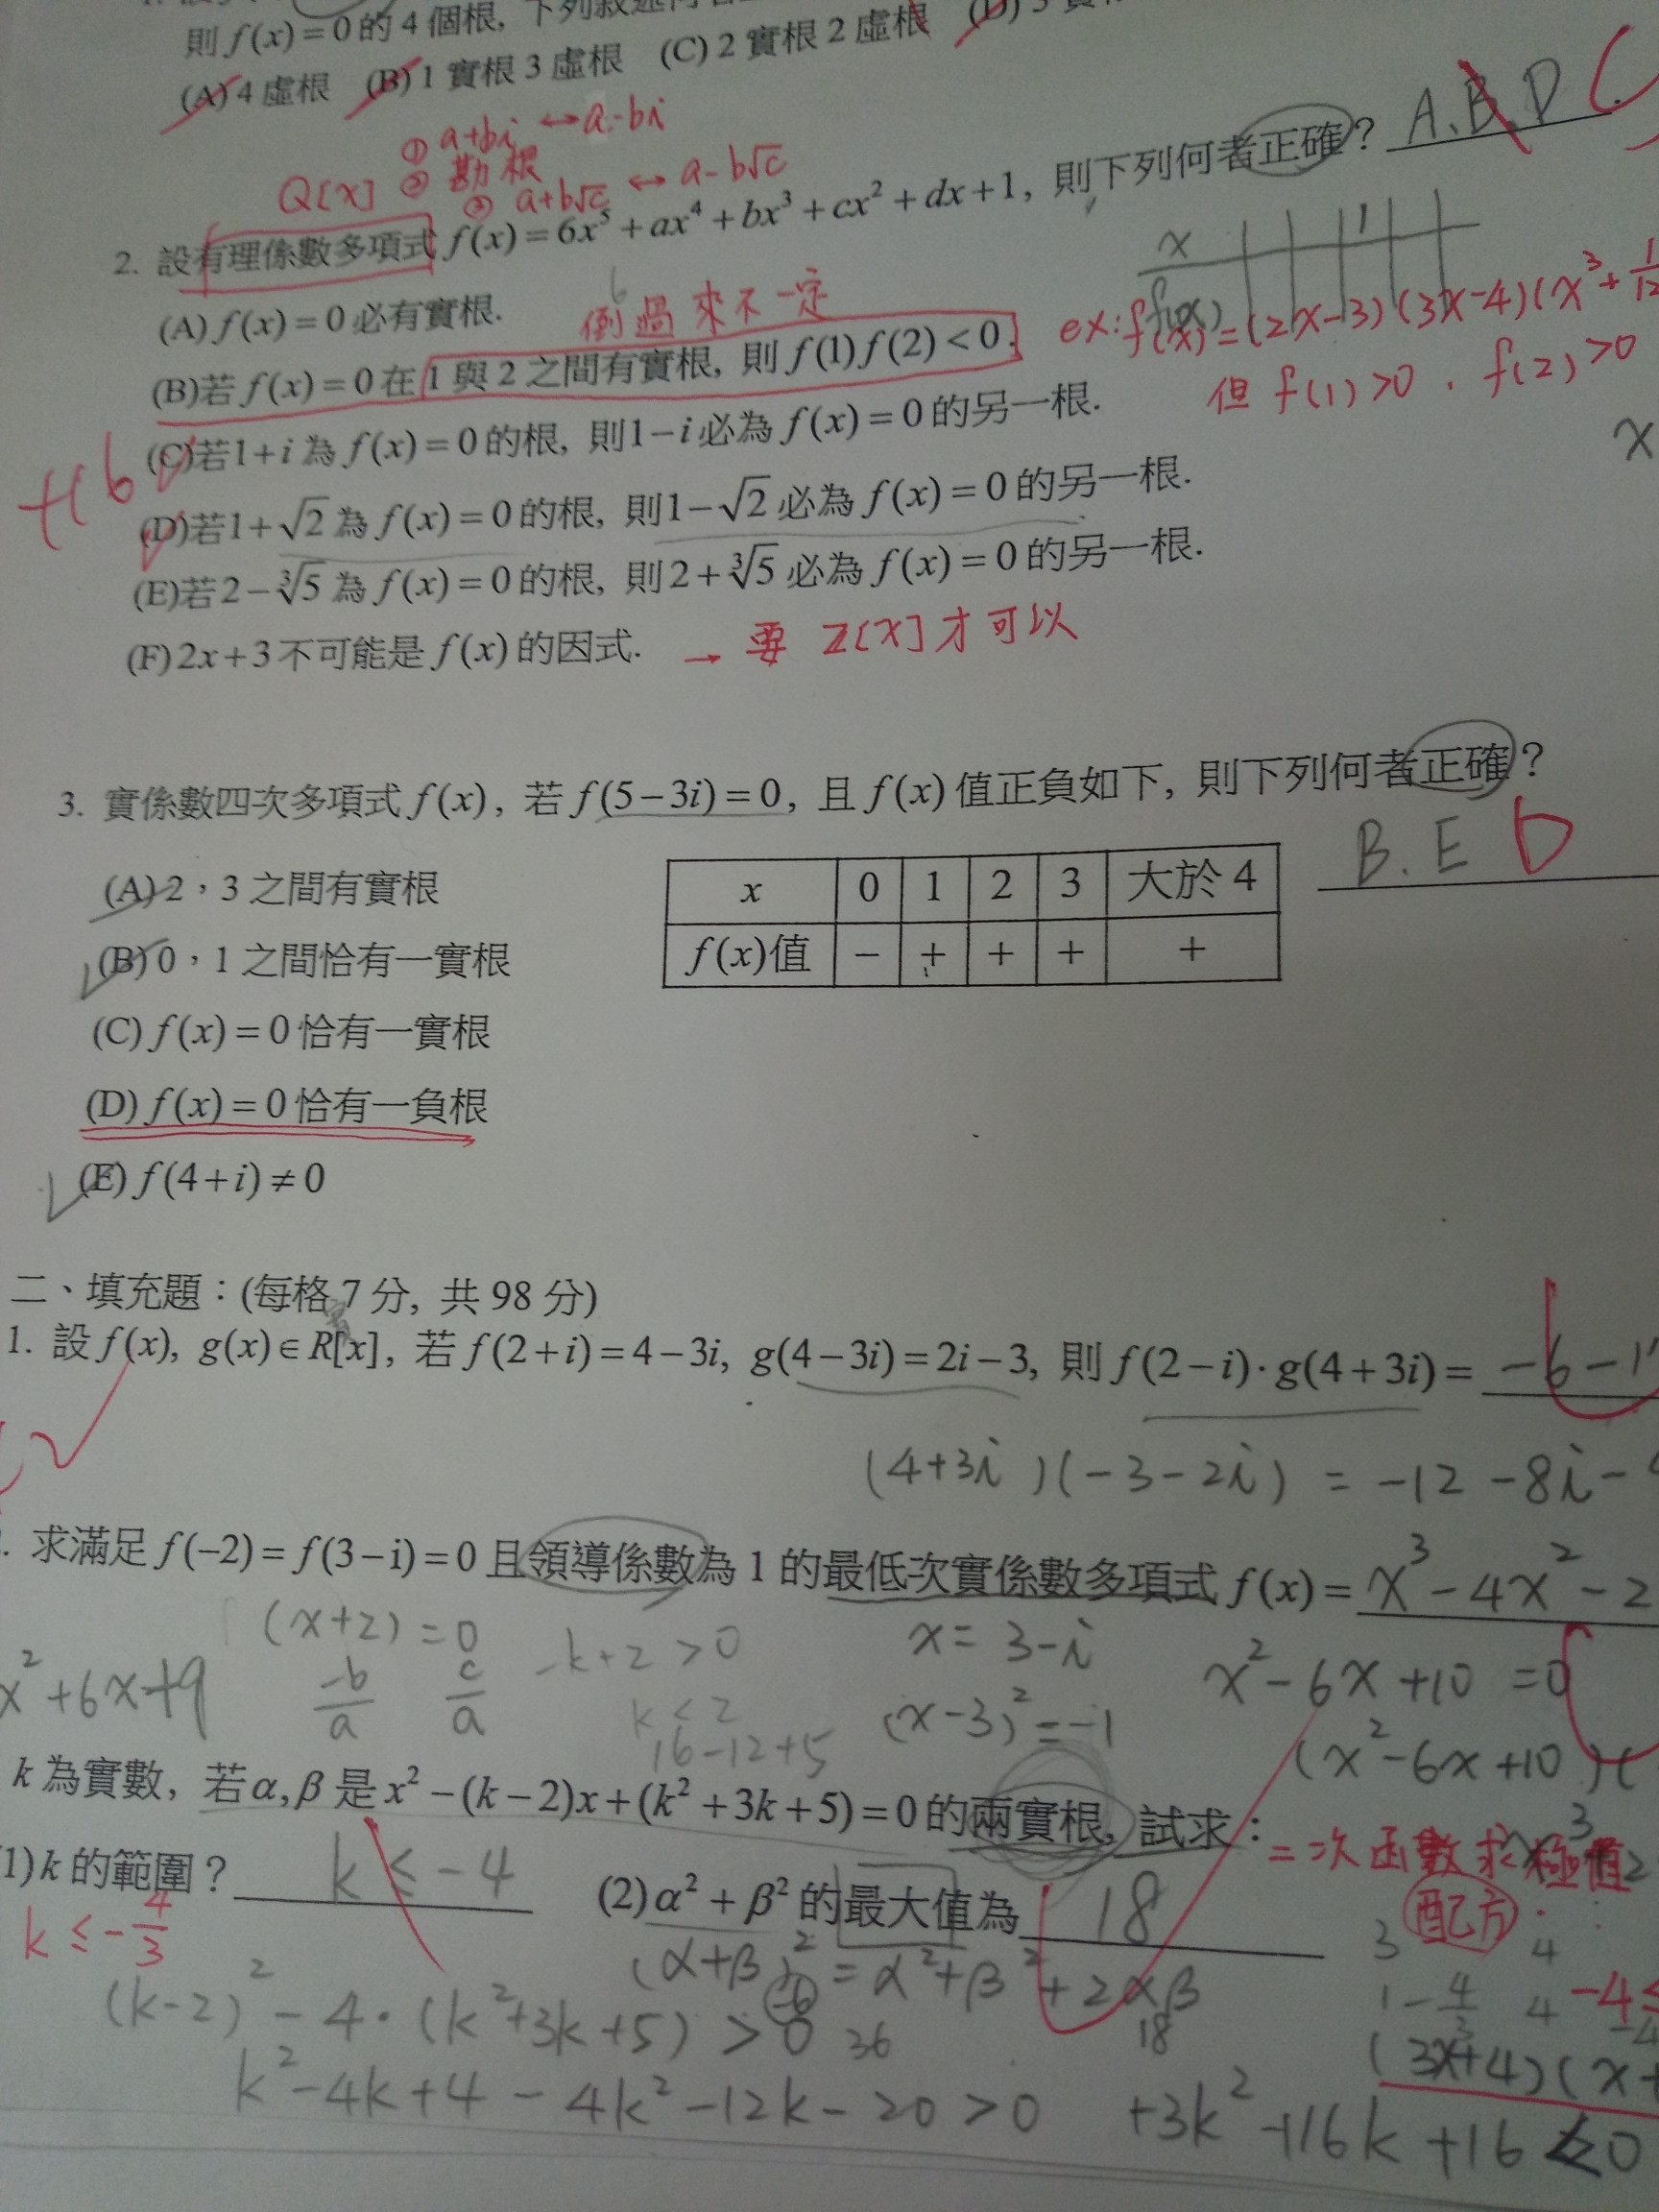 則 f(x)=0 的 4 個根, 下列敘述何者
(A) 4 虛根 (B) 1 實根 3 虛根 (C) 2 實根 2 虛根 (D) 3
① a+bi ↔ a-bi
Q[x] ② 勘根
③ a+b√c ↔ a-b√c
2. 設有理係數多項式 f(x)=6x⁵+ax⁴+bx³+cx²+dx+1, 則下列何者正確? A、B、D C
x 1
f(x)
(A) f(x)=0 必有實根.
倒過來不一定
ex: f(x)=(2x-3)(3x-4)(x³+1/12
(B)若 f(x)=0 在 1 與 2 之間有實根, 則 f(1)f(2)<0.
但 f(1)>0 , f(2)>0
(C)若1+i 為 f(x)=0 的根, 則1-i 必為 f(x)=0 的另一根.
x
+6
(D)若1+√2 為 f(x)=0 的根, 則1-√2 必為 f(x)=0 的另一根.
(E)若2-∛5 為 f(x)=0 的根, 則2+∛5 必為 f(x)=0 的另一根.
(F)2x+3 不可能是 f(x) 的因式. → 要 Z[X] 才可以
3. 實係數四次多項式 f(x), 若 f(5-3i)=0, 且 f(x) 值正負如下, 則下列何者正確?
B. E D
(A) 2，3 之間有實根
x 0 1 2 3 大於 4
(B) 0，1 之間恰有一實根
f(x)值 − + + + +
(C) f(x)=0 恰有一實根
(D) f(x)=0 恰有一負根
(E) f(4+i)≠0
二、填充題：(每格 7 分, 共 98 分)
實
1. 設 f(x), g(x)∈R[x], 若 f(2+i)=4-3i, g(4-3i)=2i-3, 則 f(2-i)·g(4+3i)= -6-1
(4+3i)(-3-2i) = -12-8i-
. 求滿足 f(-2)=f(3-i)=0 且領導係數為 1 的最低次實係數多項式 f(x)= x³-4x²-2
(x+2)=0 -k+2>0 x=3-i
x²+6x+9 -b/a c/a k<2 (x-3)²=-1 x²-6x+10=0
16-12+5 (x²-6x+10)(
k 為實數, 若 α,β 是 x²-(k-2)x+(k²+3k+5)=0 的兩實根, 試求：
二次函數求極值
1) k 的範圍? k≤-4 (2) α²+β² 的最大值為 18
配方
k≤-4/3
(α+β)²=α²+β²+2αβ
-6 36 18
(k-2)²-4·(k²+3k+5)>0
3 4
1 -4/3 4 -4≤
(3x+4)(x+
k²-4k+4-4k²-12k-20>0 +3k²+16k+16≤0